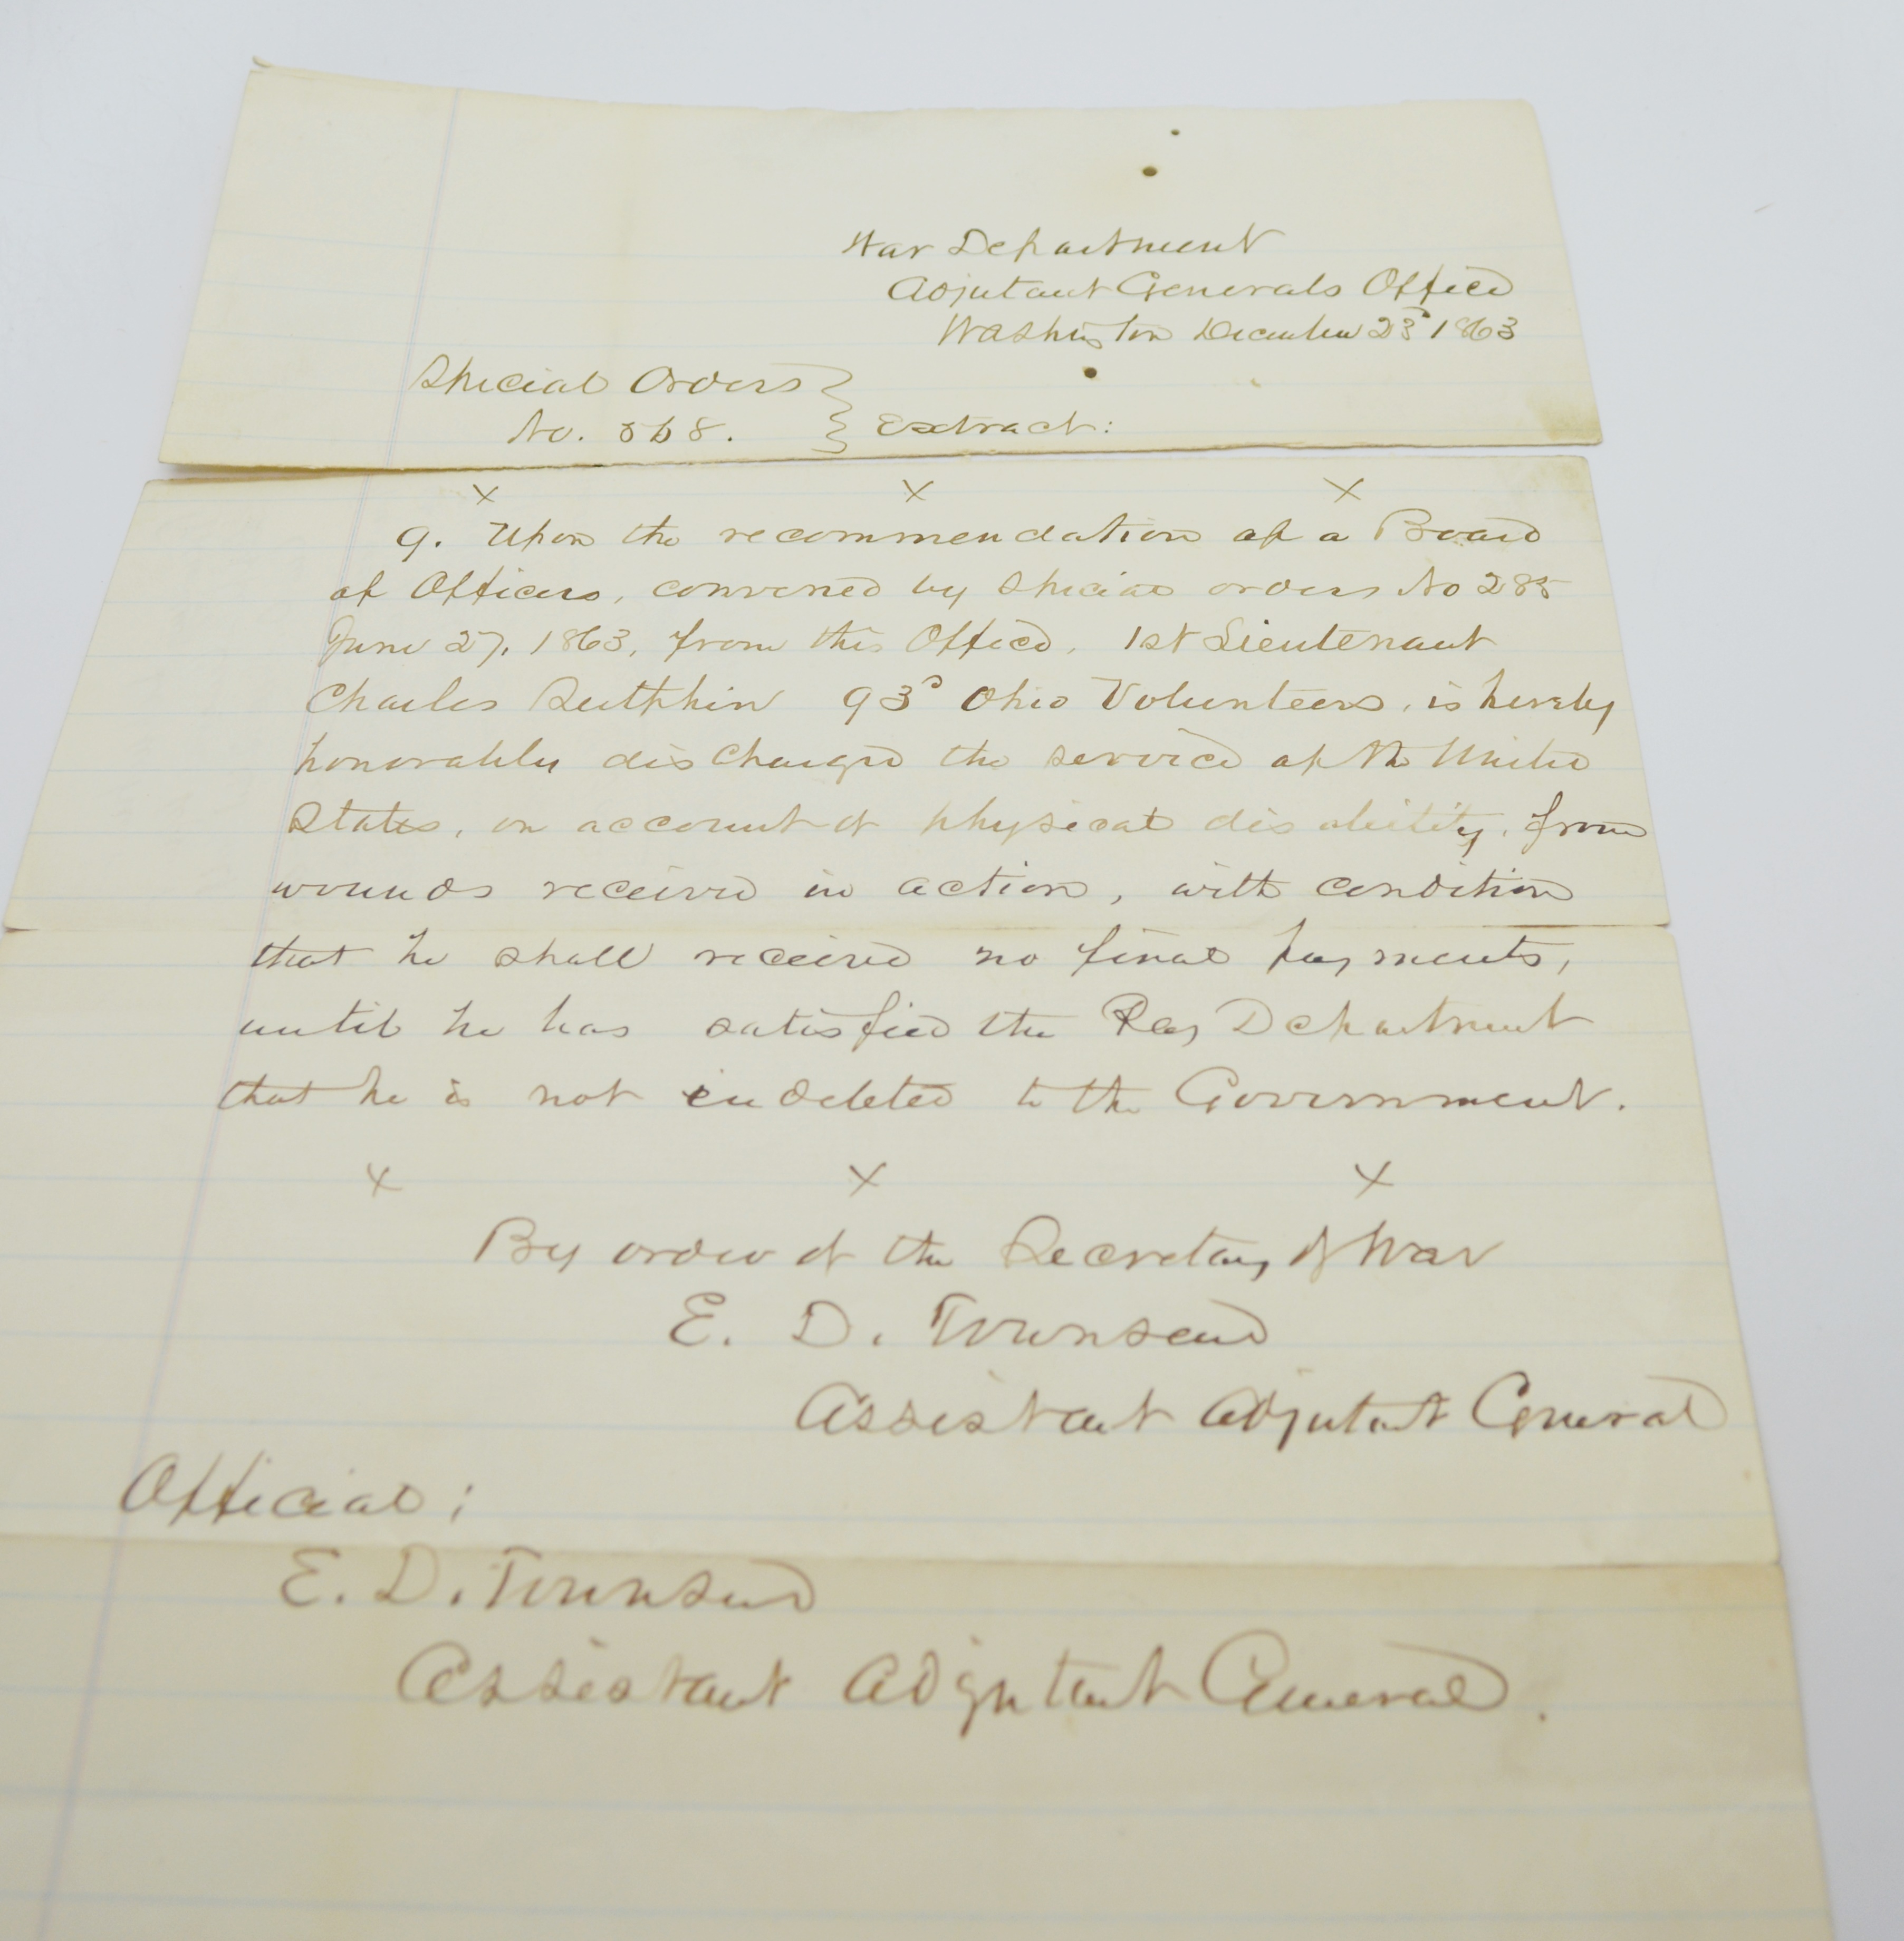 War Department
Adjutant Generals Office
Washington December 23d 1863
Special Orders
No. 568. } Extract:
x x x
9. Upon the recommendation of a Board
of Officers, convened by Special orders No 285
June 27, 1863, from this Office, 1st Lieutenant
Charles Sutphin 93d Ohio Volunteers, is hereby
honorably discharged the service of the United
States, on account of physical disability, from
wounds received in action, with condition
that he shall receive no final payments,
until he has satisfied the Pay Department
that he is not indebted to the Government.
x x x
By order of the Secretary of War
E. D. Townsend
Assistant Adjutant General
Official:
E. D. Townsend
Assistant Adjutant General.